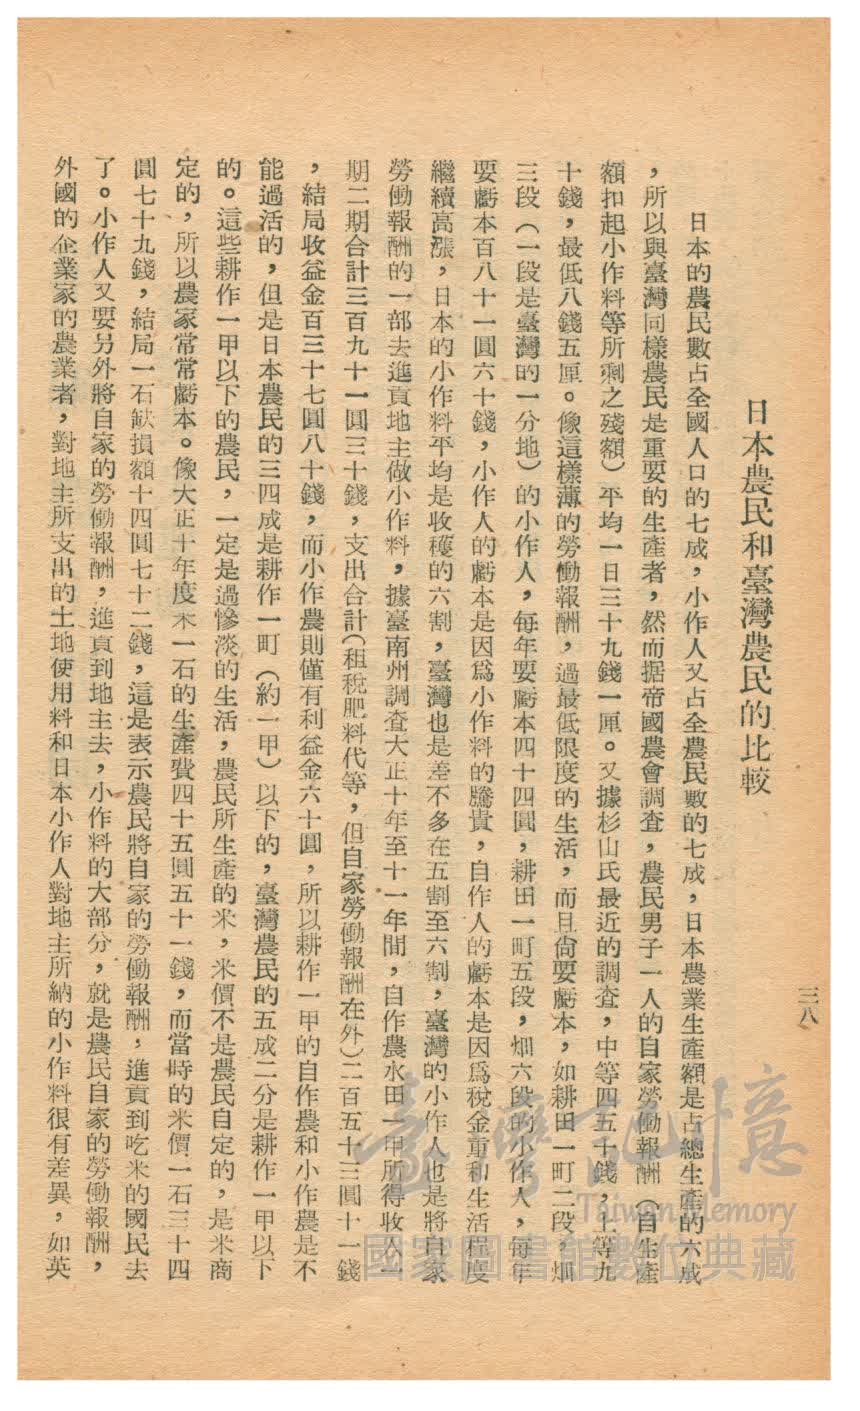 三八
日本農民和臺灣農民的比較
日本的農民數占全國人口的七成，小作人又占全農民數的七成，日本農業生產額是占總生產的六成
，所以與臺灣同樣農民是重要的生產者，然而据帝國農會調査，農民男子一人的自家勞働報酬（自生產
額扣起小作料等所剩之殘額）平均一日三十九錢一厘。又據杉山氏最近的調查，中等四五十錢，上等九
十錢，最低八錢五厘。像這樣薄的勞働報酬，過最低限度的生活，而且尙要虧本，如耕田一町二段，畑
三段（一段是臺灣的一分地）的小作人，每年要虧本四十四圓，耕田一町五段，畑六段的小作人，每年
要虧本百八十一圓六十錢，小作人的虧本是因爲小作料的騰貴，自作人的虧本是因爲稅金重和生活程度
繼續高漲，日本的小作料平均是收穫的六割，臺灣也是差不多在五割至六割，臺灣的小作人也是將自家
勞働報酬的一部去進貢地主做小作料，據臺南州調査大正十年至十一年間，自作農水田一甲所得收入一
期二期合計三百九十一圓三十錢，支出合計（租稅肥料代等，但自家勞働報酬在外）二百五十三圓十一錢
，結局收益金百三十七圓八十錢，而小作農則僅有利益金六十圓，所以耕作一甲的自作農和小作農是不
能過活的，但是日本農民的三四成是耕作一町（約一甲）以下的，臺灣農民的五成二分是耕作一甲以下
的。這些耕作一甲以下的農民，一定是過慘淡的生活，農民所生產的米，米價不是農民自定的，是米商
定的，所以農家常常虧本。像大正十年度米一石的生產費四十五圓五十一錢，而當時的米價一石三十四
圓七十九錢，結局一石缺損額十四圓七十二錢，這是表示農民將自家的勞働報酬，進貢到吃米的國民去
了。小作人又要另外將自家的勞働報酬，進貢到地主去，小作料的大部分，就是農民自家的勞働報酬，
外國的企業家的農業者，對地主所支出的土地使用料和日本小作人對地主所納的小作料很有差異，如英
臺灣記憶
Taiwan Memory
國家圖書館數位典藏